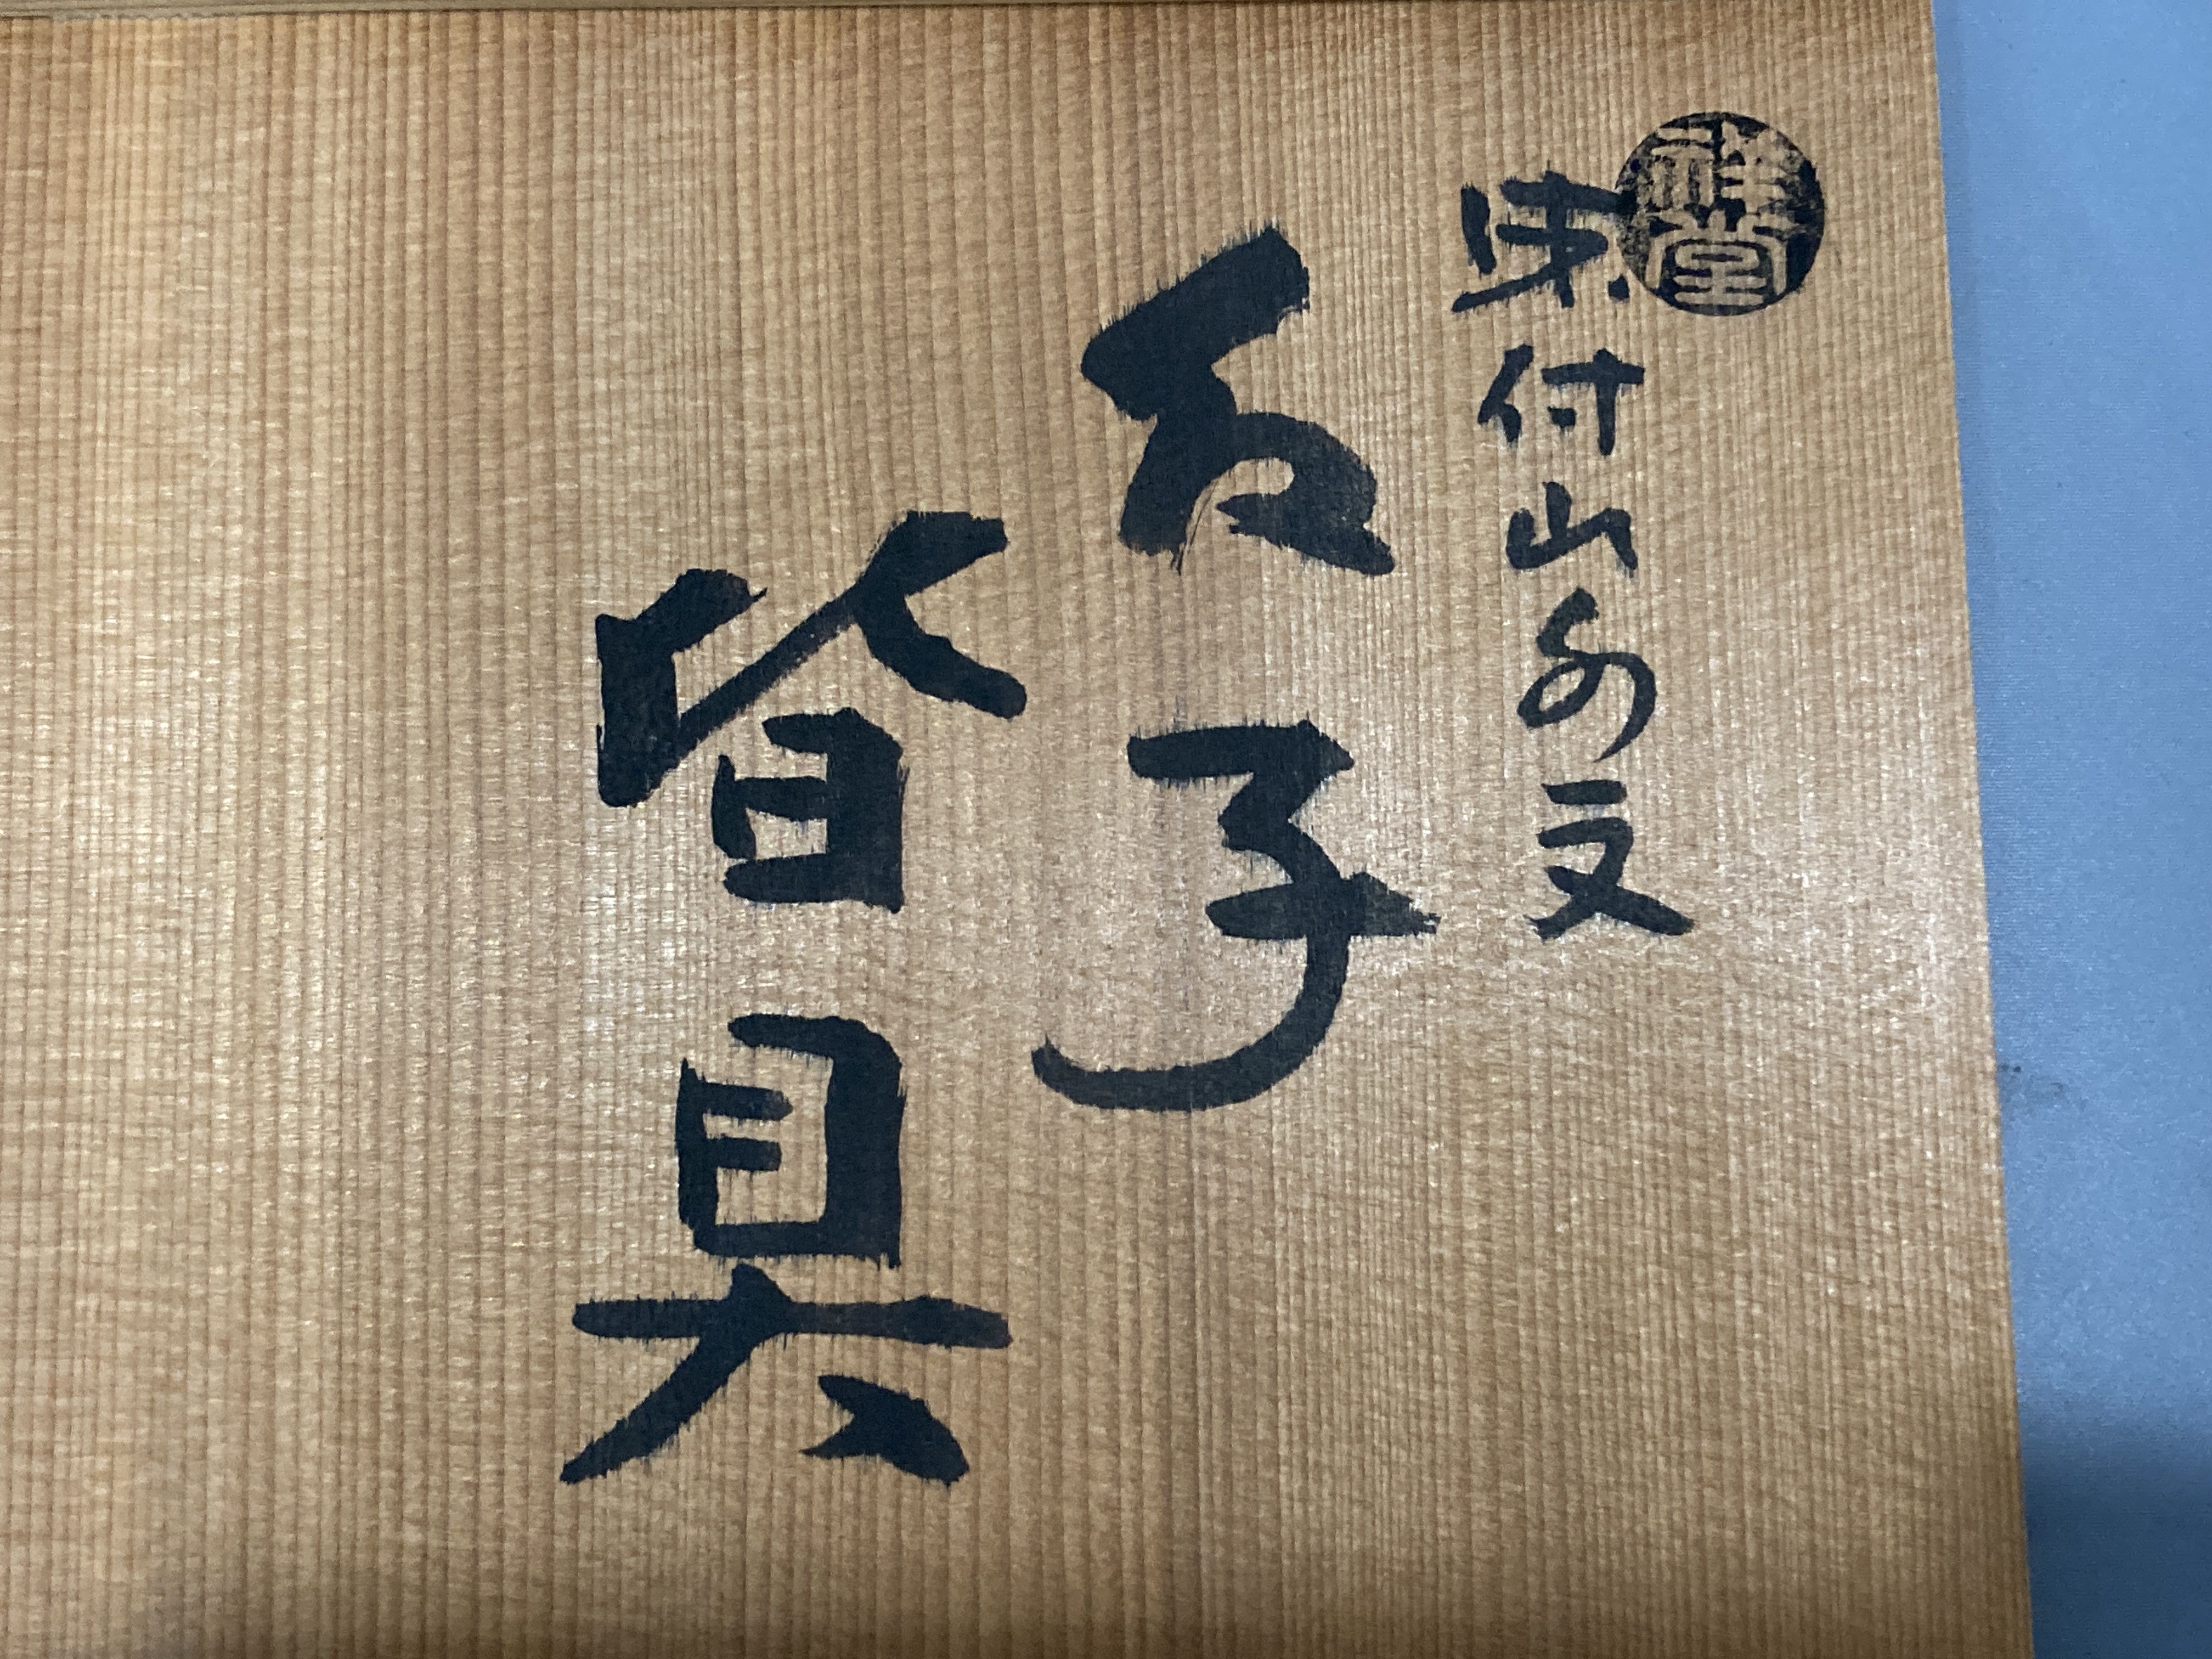 祥堂
染付山水文
台子
皆具